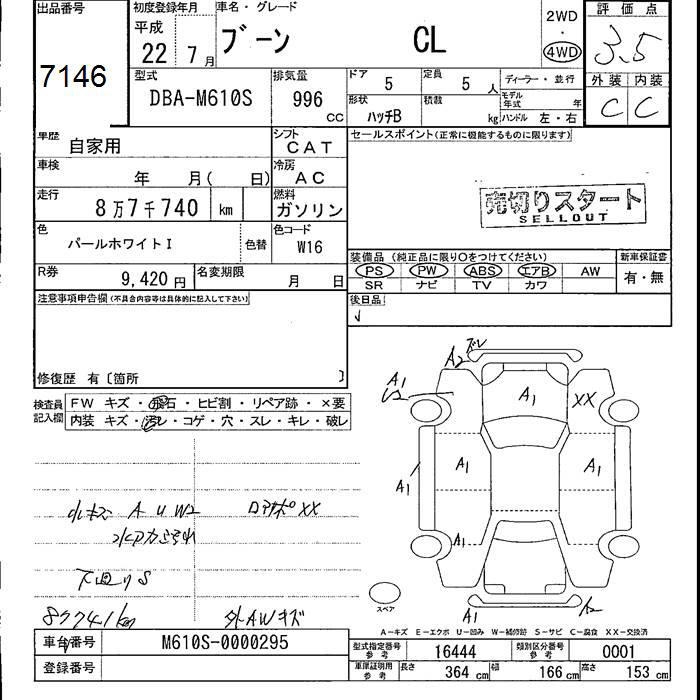 出品番号
7146
初度登録年月
平成
22 7 月
車名・グレード
ブーン CL
2WD
・
4WD
評価点
3.5
外装 内装
C C
型式
DBA-M610S
排気量
996 CC
ドア 5
定員 5 人
ディーラー・並行
形状 ハッチB
積載 kg
モデル年式 年
ハンドル 左・右
車歴 自家用
シフト CAT
セールスポイント(正常に機能するものに限ります)
車検 年 月( 日)
冷房 AC
走行 8万7千740 km
燃料 ガソリン
売切りスタート
SELLOUT
色 パールホワイトI
色替
色コード W16
装備品(純正品に限り○をつけてください)
新車保証書
PS PW ABS エアB AW
SR ナビ TV カワ
有・無
R券 9,420 円
名変期限 月 日
後日品
注意事項申告欄(不具合内容等は具体的に記入して下さい)
修復歴 有〔箇所 〕
検査員記入欄
FW キズ・飛石・ヒビ割・リペア跡・×要
内装 キズ・汚レ・コゲ・穴・スレ・キレ・破レ
A2 ズレ
A1
U2
A1
XX
A1
A1
A1
A1
A1
A2
小キズ A U W2 ロアサポXX
下廻りS
87741km 外AWキズ
スペア
A-キズ E-エクボ U-凹み W-補修跡 S-サビ C-腐食 XX-交換済
車台番号 M610S-0000295
登録番号
型式指定番号 参考 16444
類別区分番号 参考 0001
車庫証明用 参考 長さ 364 cm 幅 166 cm 高さ 153 cm